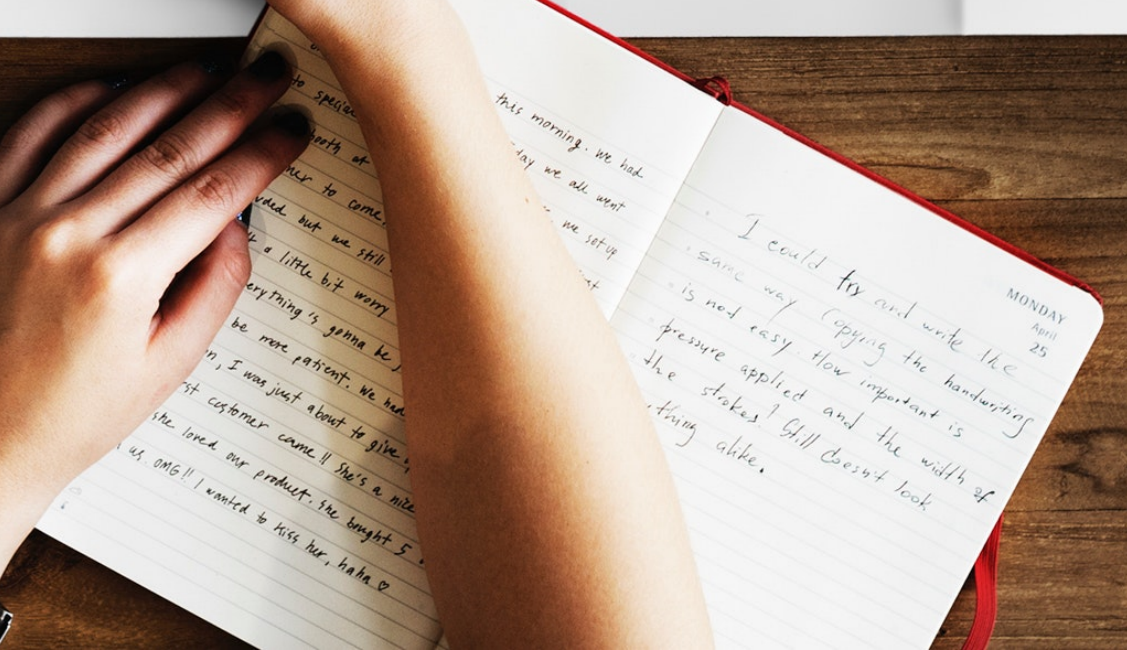 to special
this morning. we had
booth at
day we all went
her to come.
we set up
ided but we still
a little bit worry
erything's gonna be
be more patient. we had
on, I was just about to give
st customer came!! She's a nice
she loved our product. she bought 5
us. OMG!! I wanted to kiss her, haha ♡
MONDAY
April
25
I could try and write the
same way Copying the handwriting
is not easy. How important is
pressure applied and the width of
the strokes? Still doesn't look
thing alike.